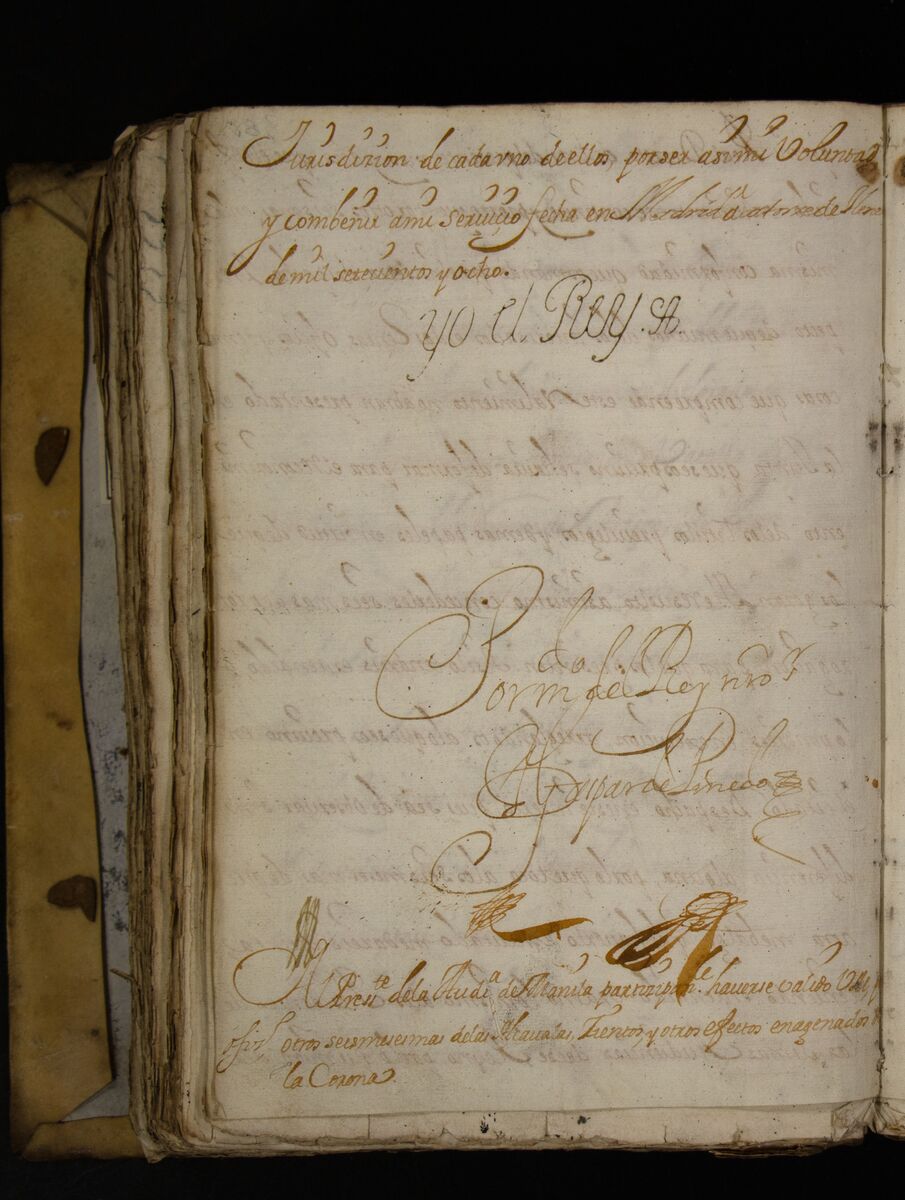 Jurisdizion de cada vno de ellos, por ser asi mi Voluntad
y combenir a mi seruiçio fecha en Madrid a catorze de
de mil setecientos y ocho.
yo el Rey
Por mdo del Rey nro sr
Gaspar de Pinedo
Al Presite de la Audia de Manila participandole hauerse valido
otros seis mesesmas de las Alcaualas, Zientos, y otros efectos enagenados
la Corona.